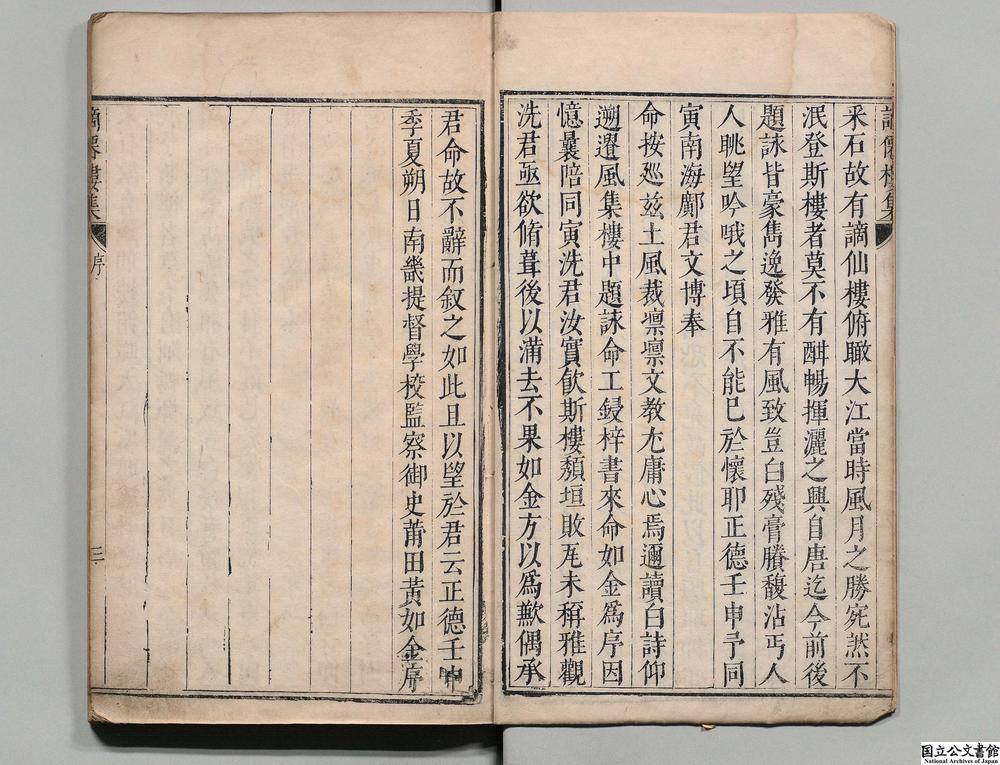 謫僊樓集
采石故有謫仙樓俯瞰大江當時風月之勝宛然不
泯登斯樓者莫不有酣暢揮灑之興自唐迄今前後
題詠皆豪雋逸發雅有風致豈白殘膏賸馥沾丐人
人眺望吟哦之頃自不能已於懷耶正德壬申予同
寅南海鄺君文博奉
命按廵兹土風裁凛凛文教尤庸心焉邇讀白詩仰
遡遺風集樓中題詠命工鋟梓書來命如金爲序因
憶曩陪同寅洗君汝實飲斯樓頽垣敗瓦未稱雅觀
洗君亟欲脩葺後以滿去不果如金方以爲歉偶承
君命故不辭而叙之如此且以望於君云正德壬申
季夏朔日南畿提督學校監察御史莆田黃如金序
謫僊樓集
序
三
国立公文書館
National Archives of Japan